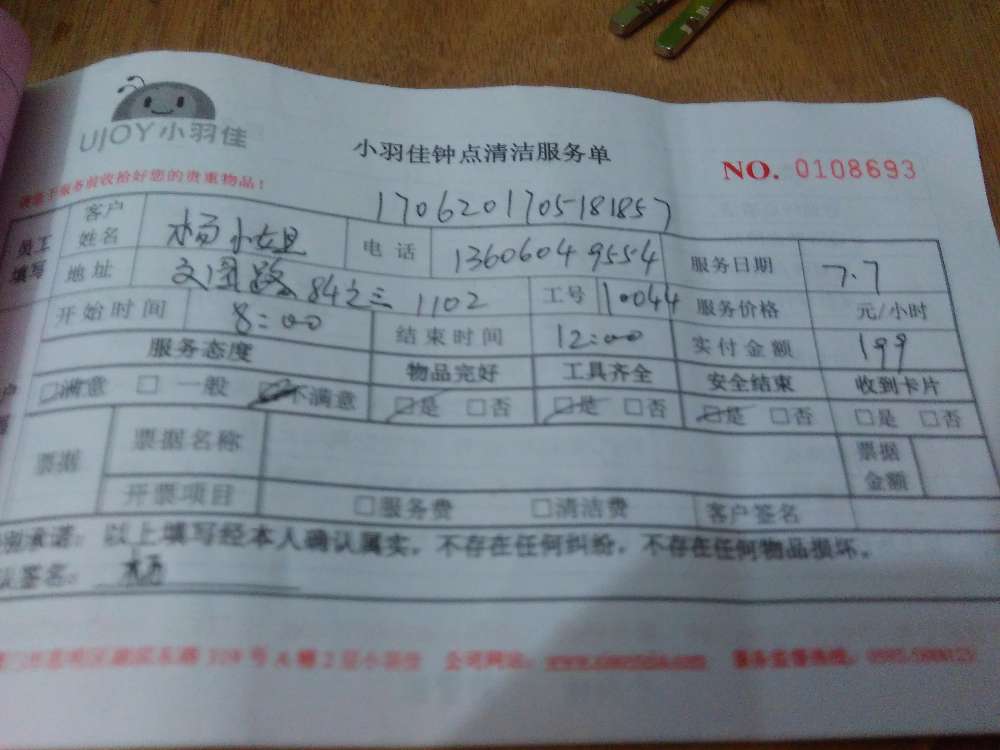 UJOY小羽佳
小羽佳钟点清洁服务单
NO. 0108693
服务前收拾好您的贵重物品！
1706201705181857
员工填写 客户姓名 杨小姐 电话 13606049554 服务日期 7.7
地址 文园路84之三 1102 工号 10044 服务价格 元/小时
开始时间 8:00 结束时间 12:00 实付金额 199
服务态度 物品完好 工具齐全 安全结束 收到卡片
□满意 □一般 □不满意 □是 □否 □是 □否 □是 □否 □是 □否
票据 票据名称 票据金额
开票项目 □服务费 □清洁费 客户签名
承诺：以上填写经本人确认属实，不存在任何纠纷，不存在任何物品损坏。
认签名：杨
号A幢2层小羽佳 公司网站：